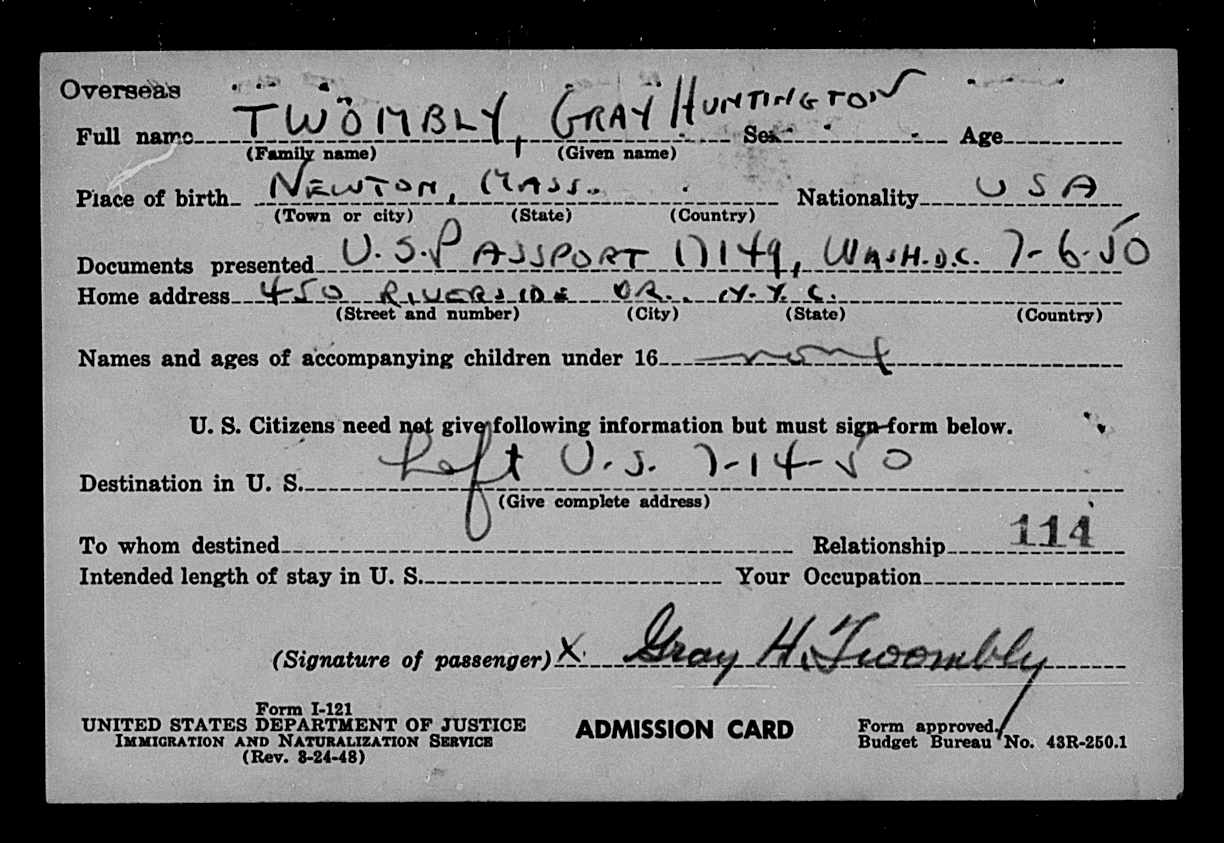 Overseas
Full name TWOMBLY, GRAY HUNTINGTON Sex Age
(Family name) (Given name)
Place of birth NEWTON, MASS. Nationality USA
(Town or city) (State) (Country)
Documents presented U.S. PASSPORT 17149, WASH.D.C. 7-6-50
Home address 450 RIVERSIDE DR. N.Y.C.
(Street and number) (City) (State) (Country)
Names and ages of accompanying children under 16 none
U. S. Citizens need not give following information but must sign form below.
Destination in U. S. Left U.S. 7-14-50
(Give complete address)
To whom destined Relationship 114
Intended length of stay in U. S. Your Occupation
(Signature of passenger) X Gray H. Twombly
Form I-121
UNITED STATES DEPARTMENT OF JUSTICE ADMISSION CARD Form approved.
IMMIGRATION AND NATURALIZATION SERVICE Budget Bureau No. 43R-250.1
(Rev. 8-24-48)